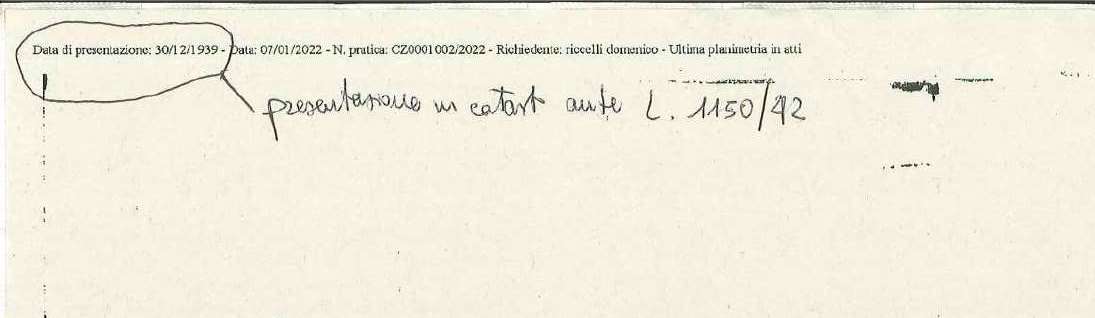 Data di presentazione: 30/12/1939 - Data: 07/01/2022 - N. pratica: CZ0001002/2022 - Richiedente: riccelli domenico - Ultima planimetria in atti
presentazione in catast ante L. 1150/42